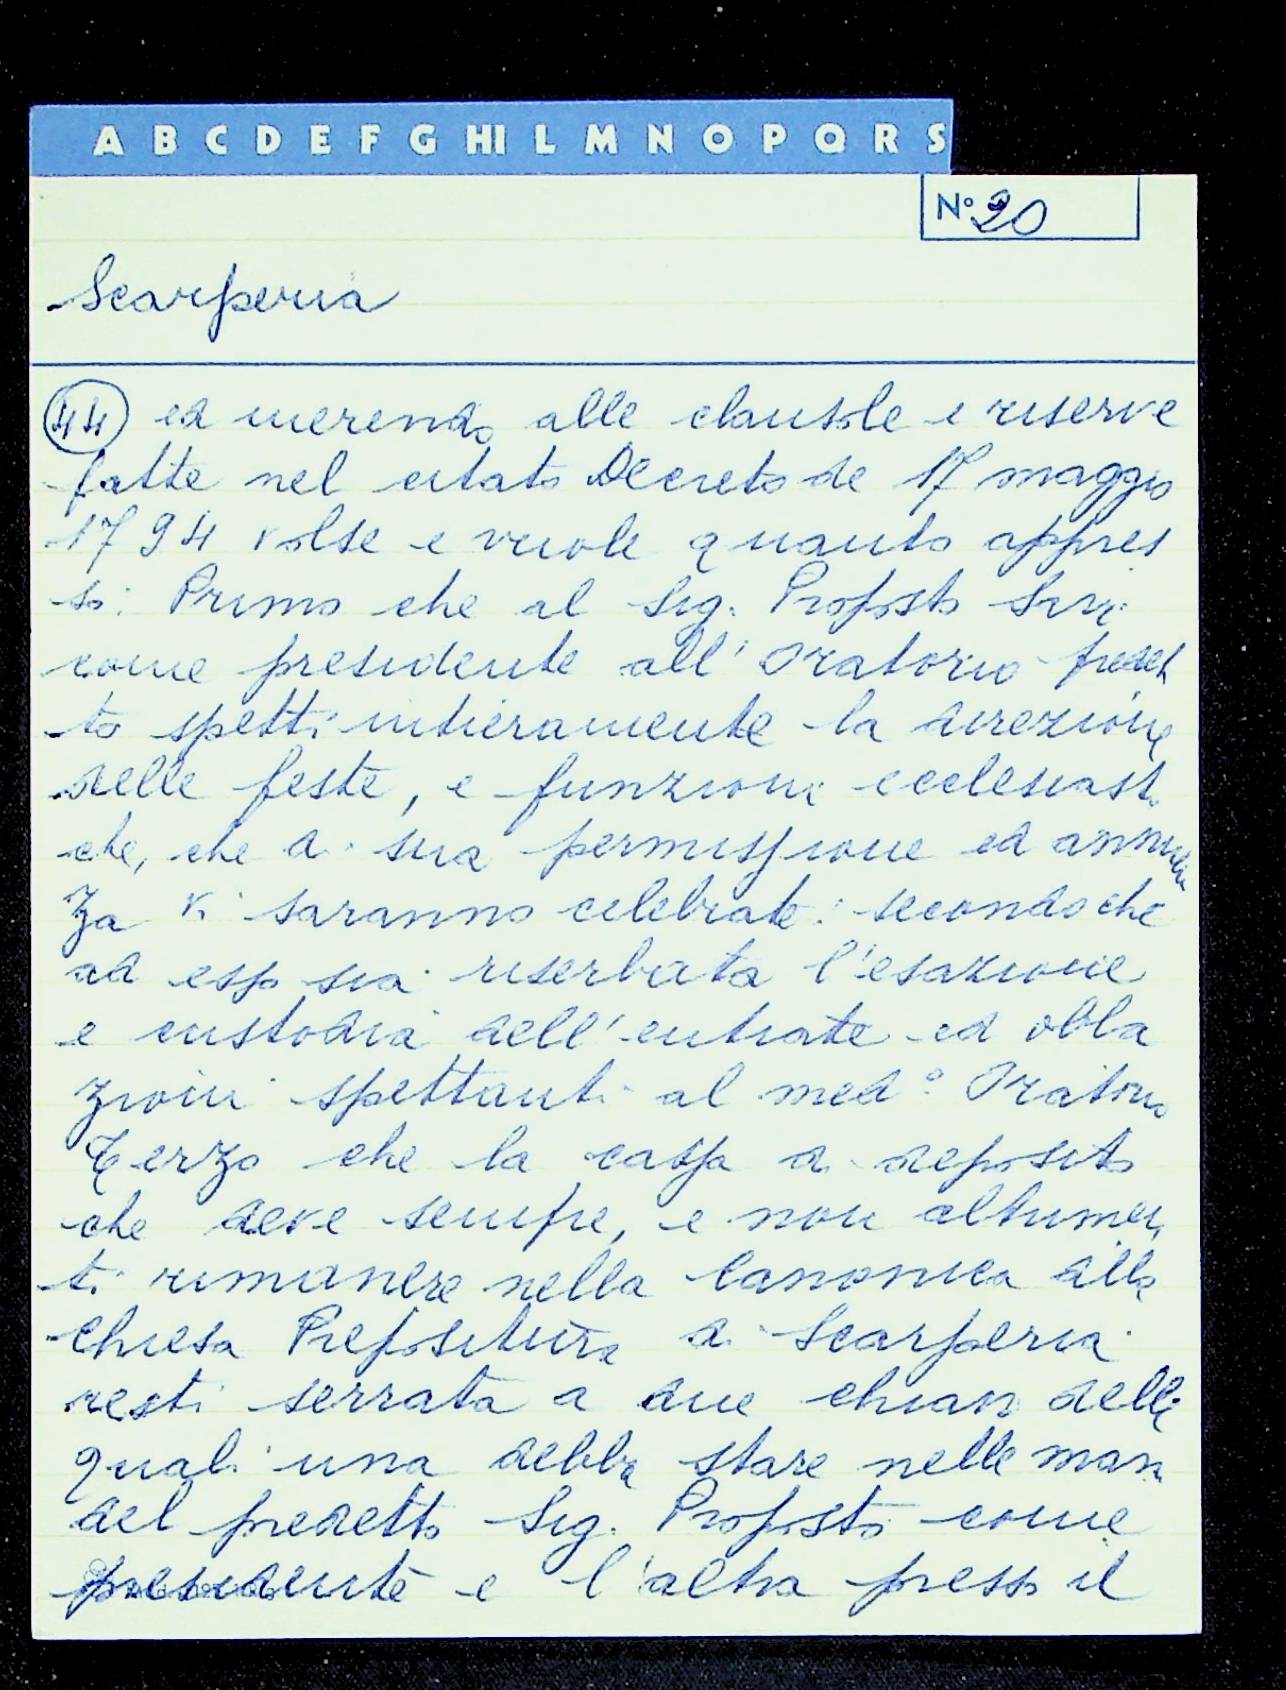 A B C D E F G HI L M N O P Q R S
N° 20
Scarperia
44 ed inerendo alle clausole e riserve
fatte nel citato Decreto de 17 maggio
1794 volse e vuole quanto appres
so: Primo che al Sig. Proposto Savi
come presidente all' Oratorio predet
to spetti intieramente la direzione
delle feste, e funzioni ecclesiasti
che, che di sua permissione ed annuen
za vi saranno celebrate: secondo che
ad esso sia riserbata l'esazione
e custodia dell'entrate ed obla
zioni spettanti al med° Oratorio
Terzo che la cassa di deposito
che deve sempre, e non altrimen
ti rimanere nella Canonica alla
Chiesa Prepositura di Scarperia
resti serrata a due chiavi delle
quali una debba stare nelle mani
del predetto Sig. Proposto come
presidente e l'altra presso il